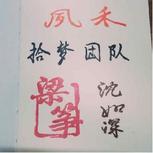 夙禾
拾梦团队
梁筝
沈如深